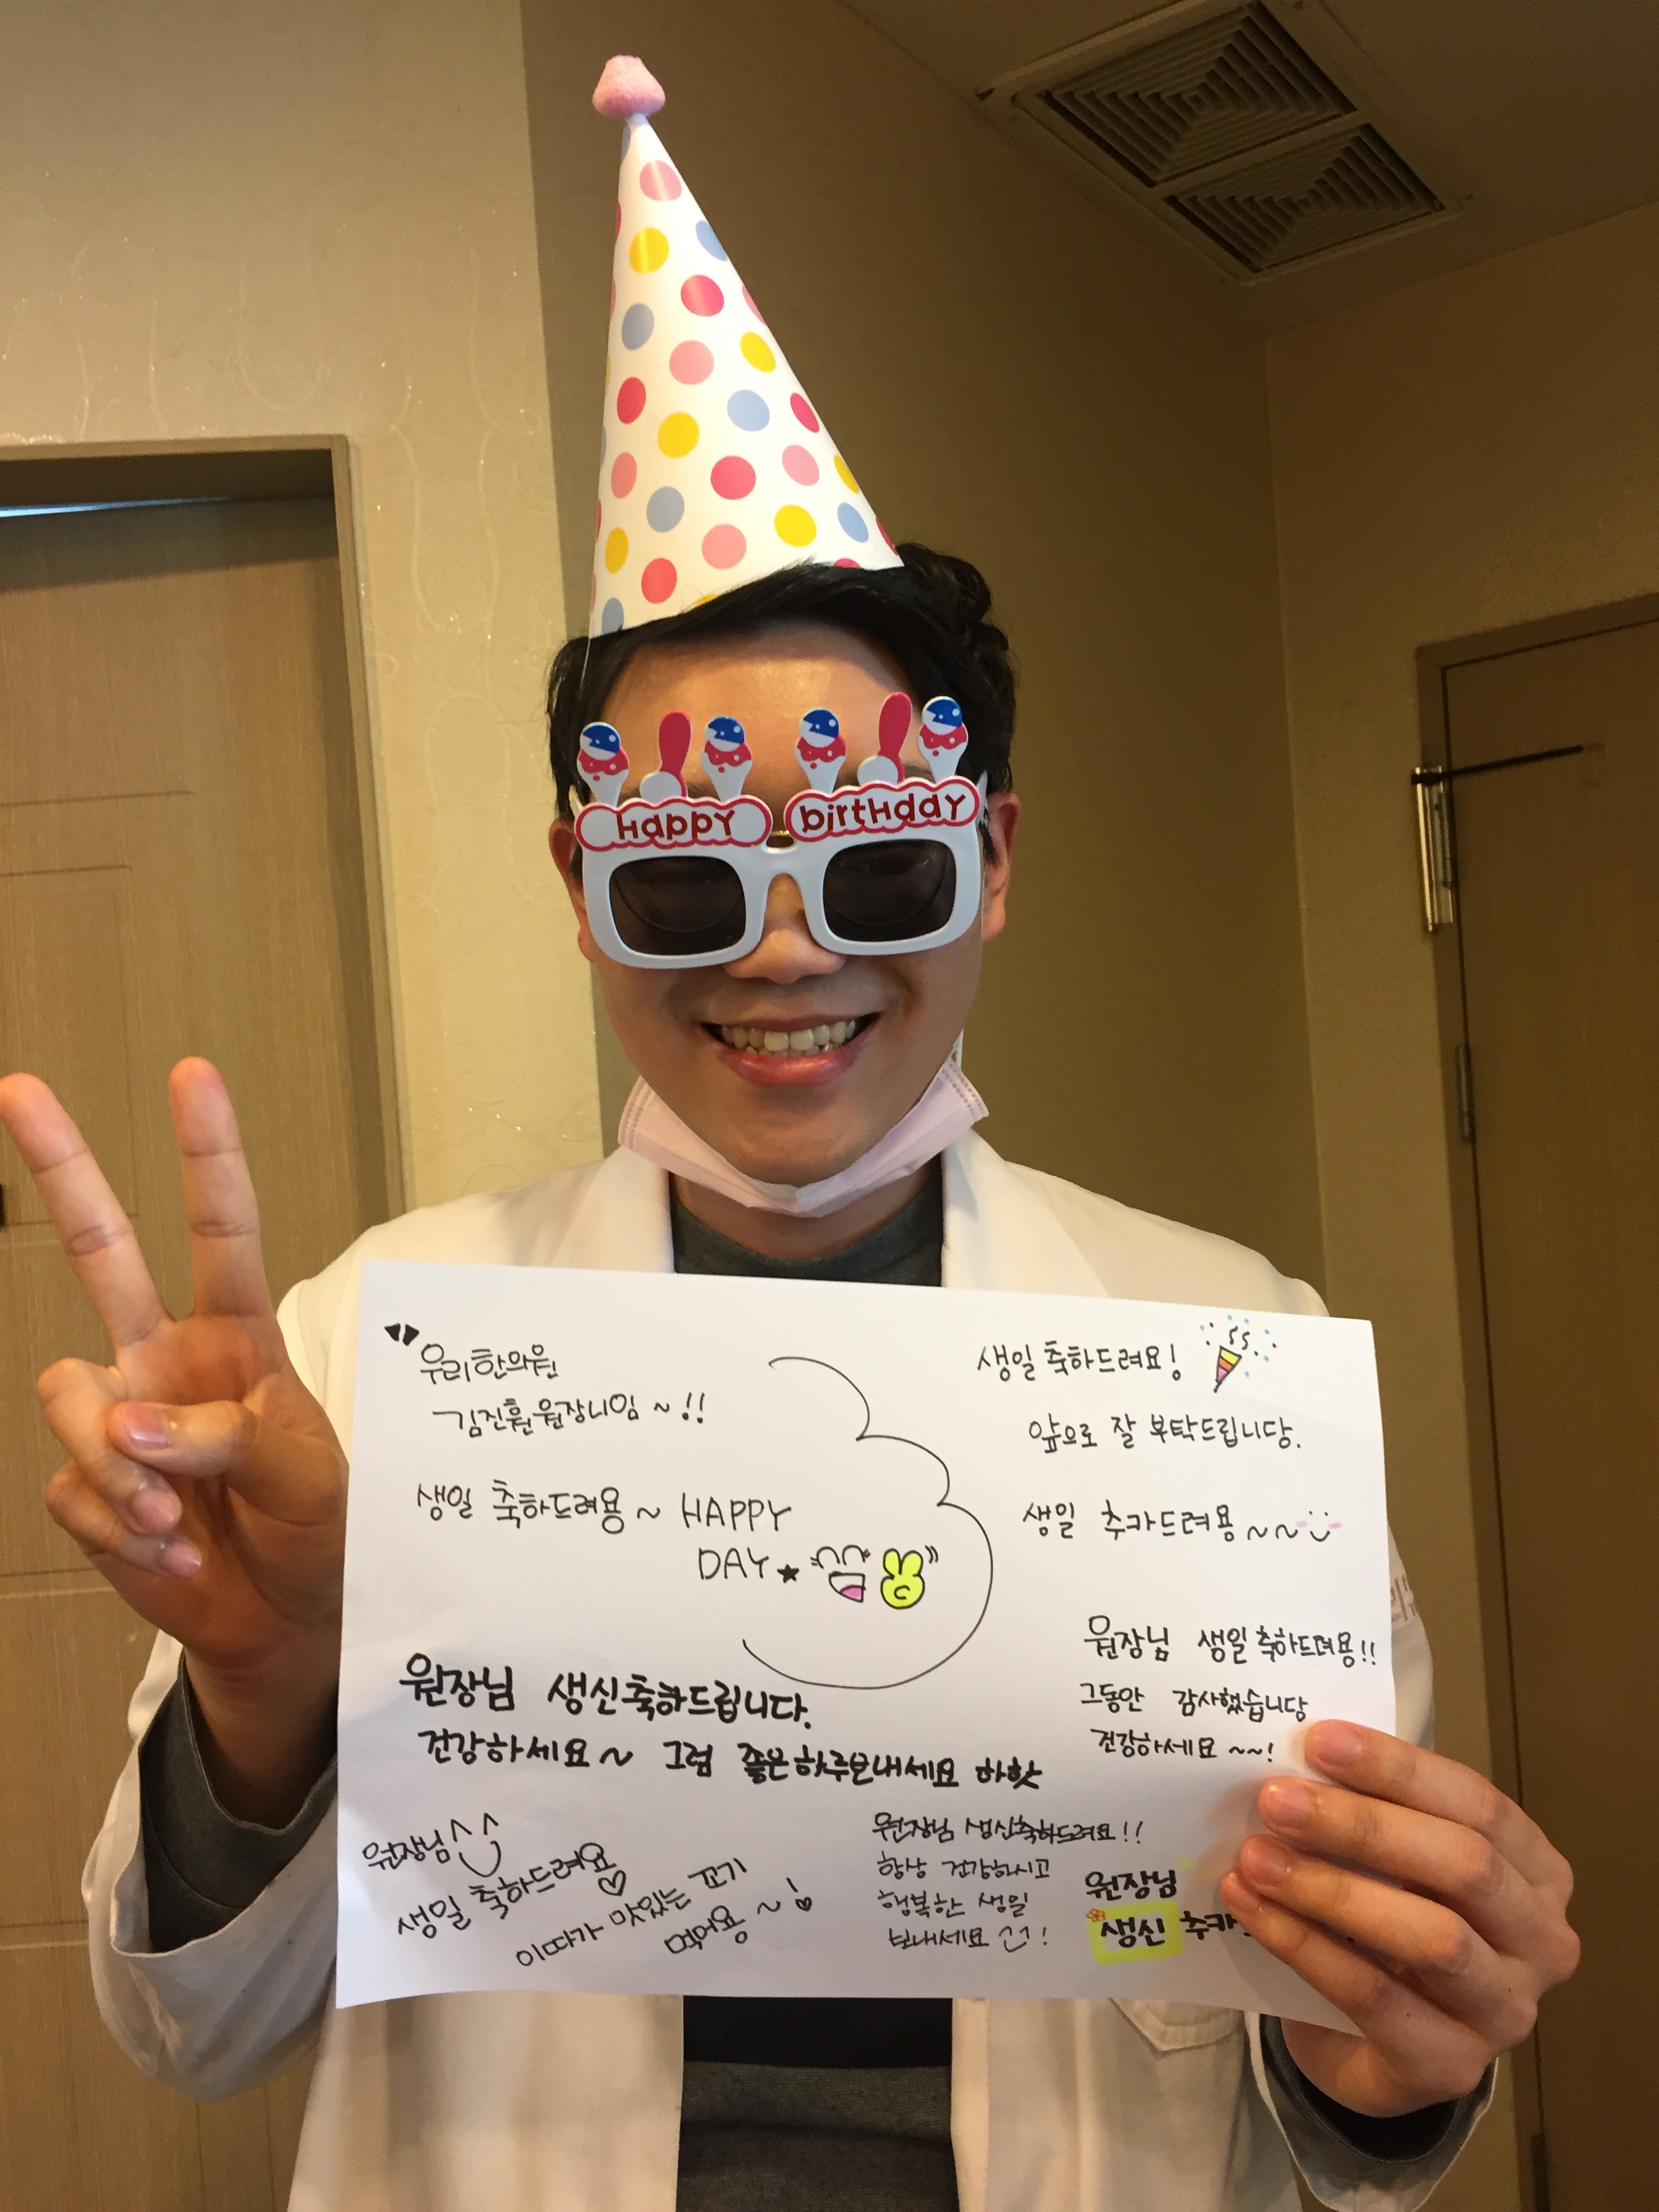 Happy birthday
우리한의원
김진훤원장니임 ~!!
생일 축하드려용 ~ HAPPY
DAY★
생일 축하드려요!
앞으로 잘 부탁드립니당.
생일 추카드려용 ~~
원장님 생일 축하드려용!!
그동안 감사했습니당
건강하세요 ~~!
원장님 생신축하드립니다.
건강하세요~ 그럼 좋은하루보내세요 하핫
원장님^^
생일 축하드려용♡
이따가 맛있는 꼬기
먹어용 ~!
원장님 생신축하드려요!!
항상 건강하시고
행복한 생일
보내세요 !
원장님
생신 추카